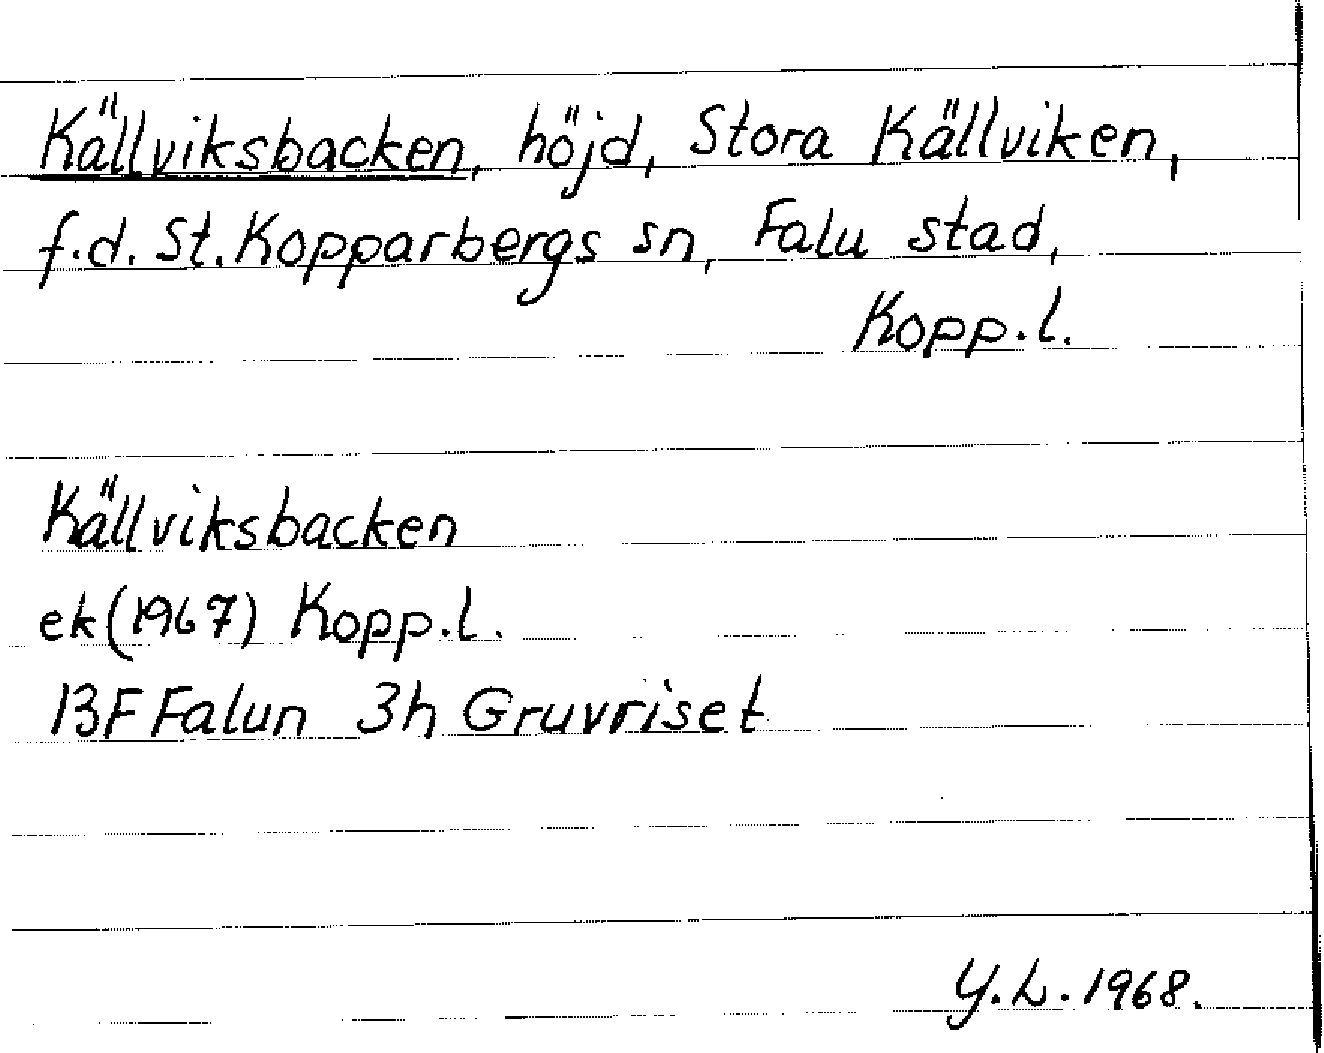 Källviksbacken, höjd, Stora Källviken,
f.d. St. Kopparbergs sn, Falu stad,
Kopp.l.
Källviksbacken
ek (1967) Kopp.l.
13F Falun 3h Gruvriset
Y.L. 1968.